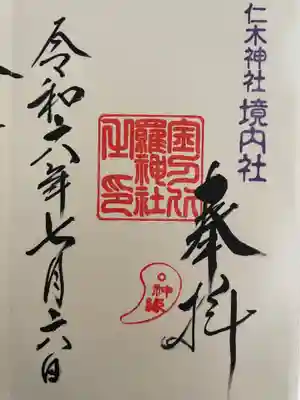 仁木神社 境内社
奉拝
金刀比
羅神社
之印
令和六年七月六日